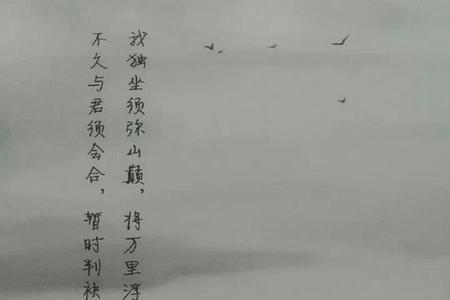 我独坐须弥山巅，将万里浮
不久与君须会合，暫时判袂